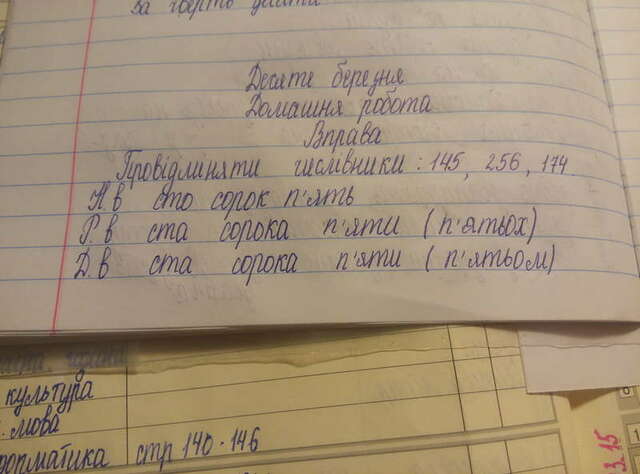 за
Десяте березня
Домашня робота
Вправа
Провідміняти числівники : 145, 256, 174
Н.в сто сорок п'ять
Р.в ста сорока п'яти (п'ятьох)
Д.в ста сорока п'яти (п'ятьом)
культура
мова
стр 140-146
3.15